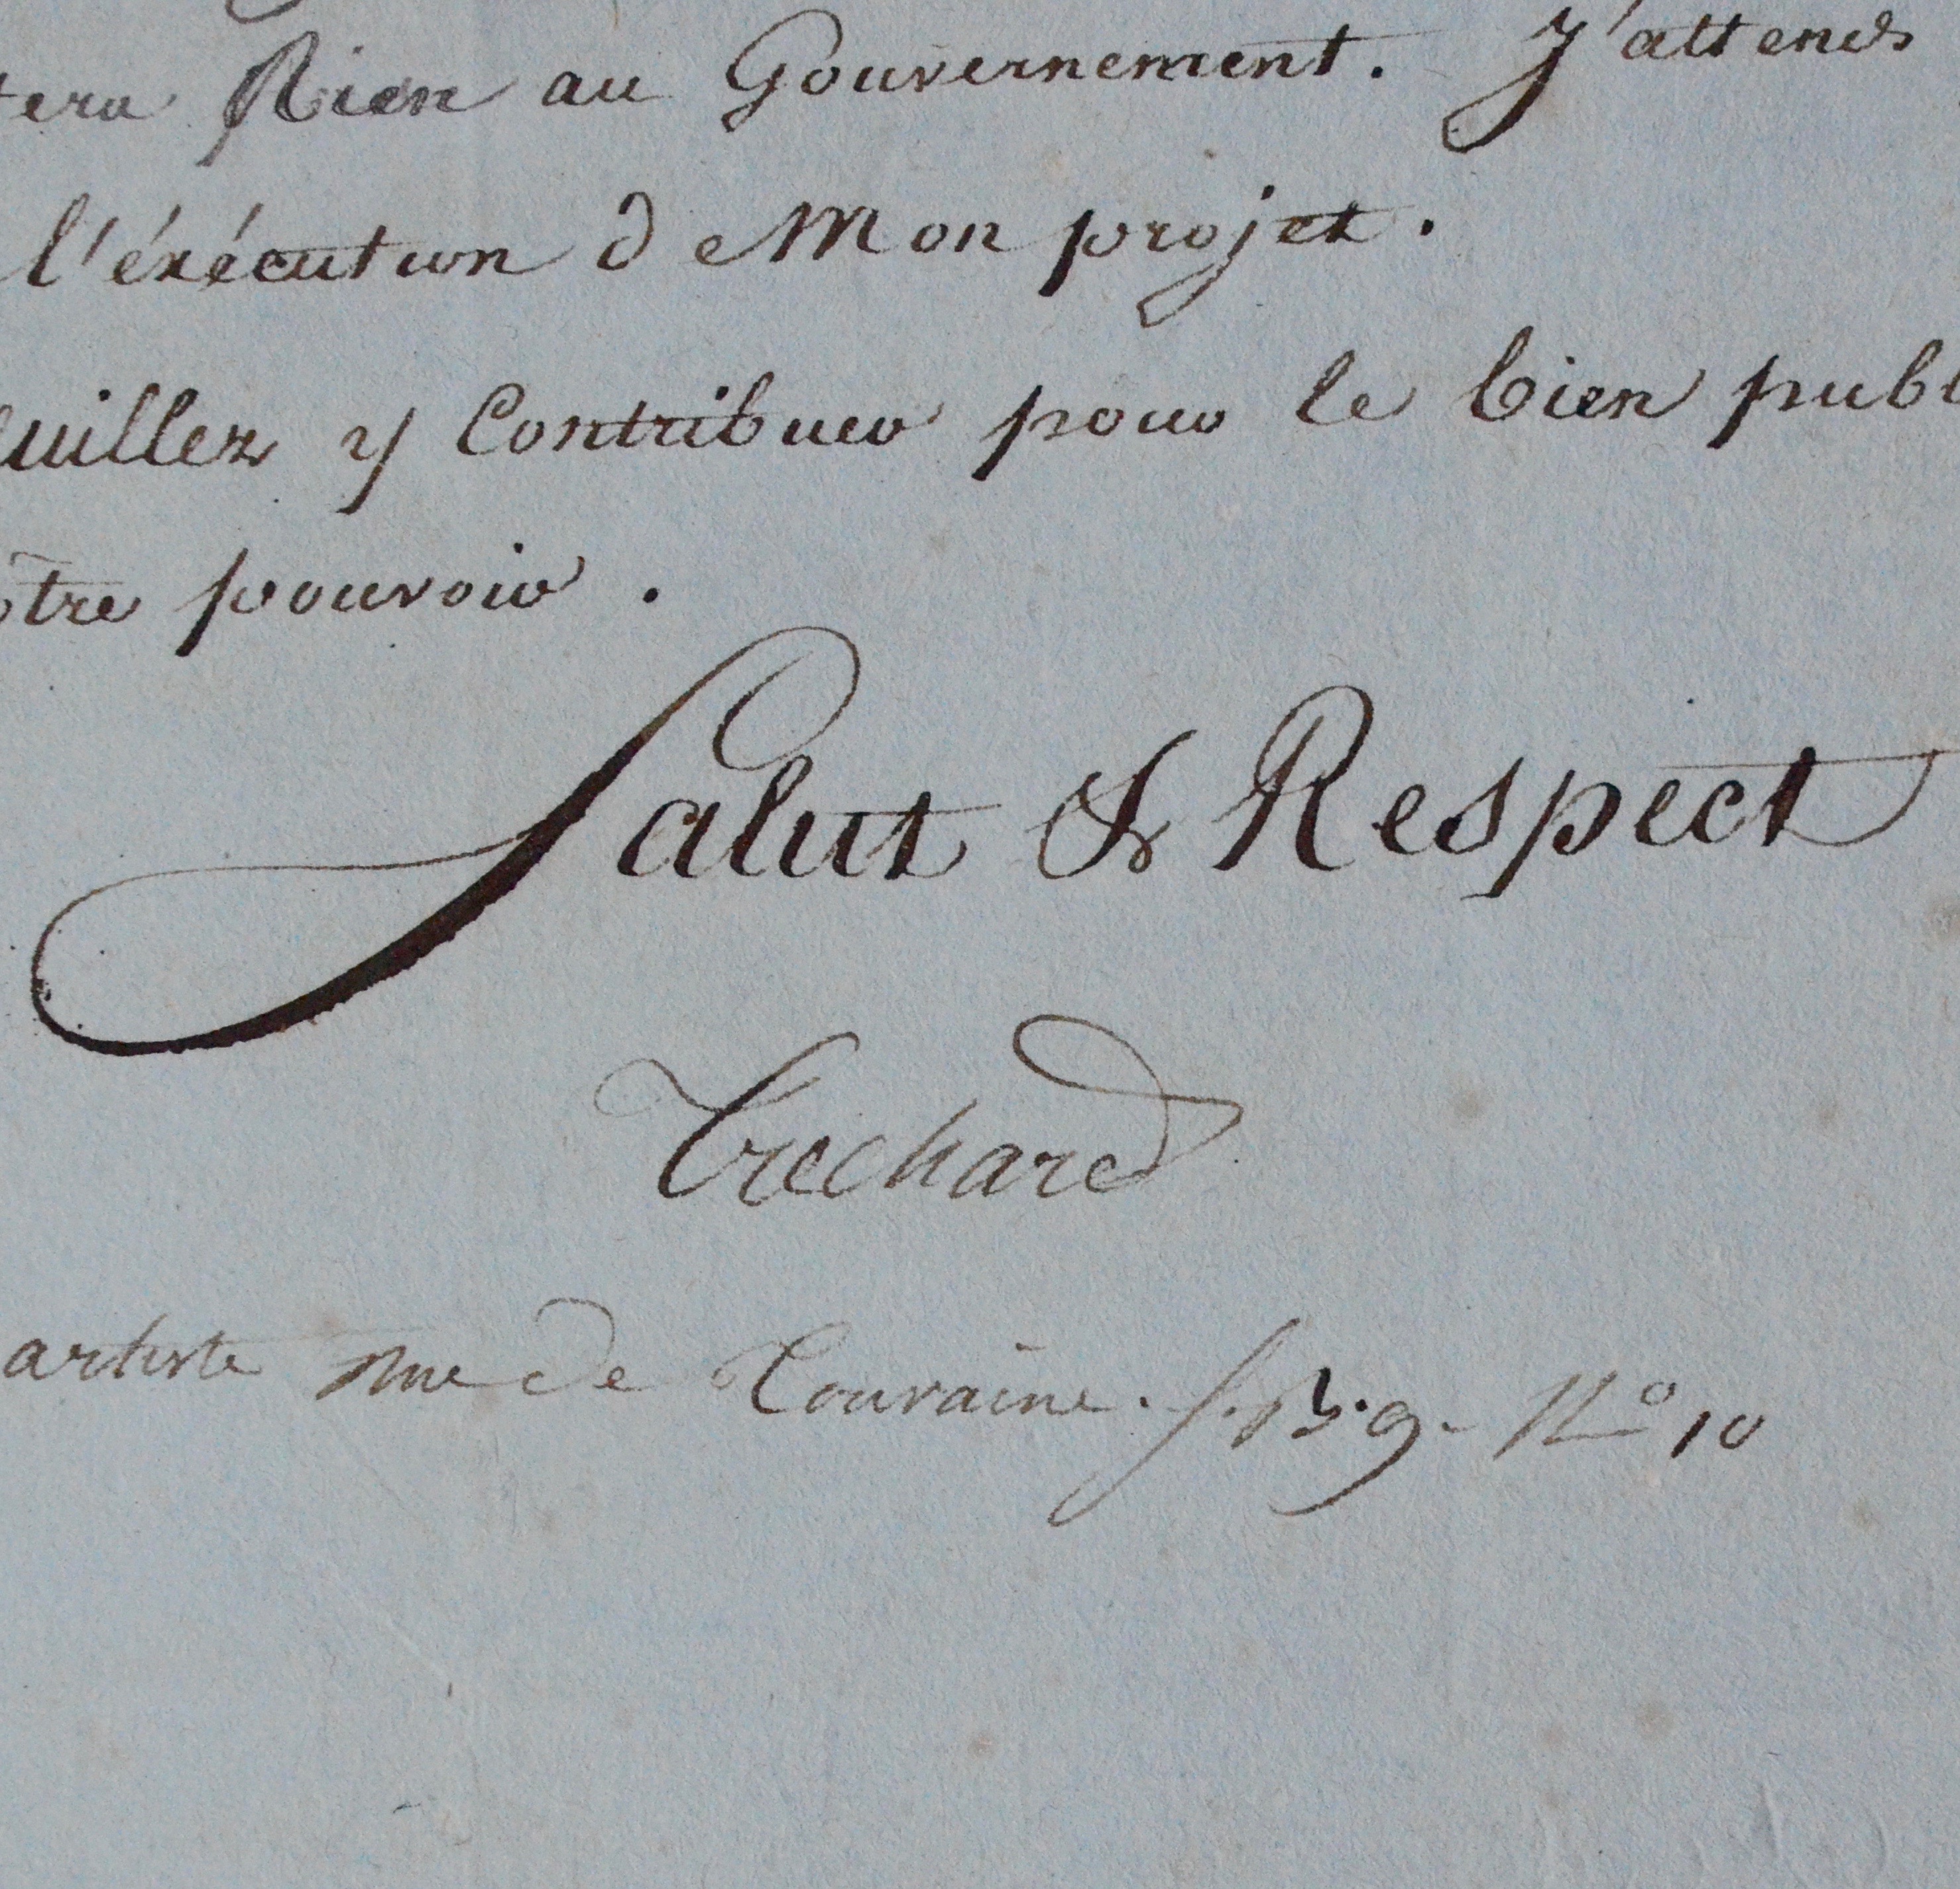 tera Rien au Gouvernement. J'attends
l'éxécution de Mon projet.
euillez y Contribuer pour le bien publ
otre pouvoir.
Salut & Respect
Trechard
artiste rue de Touraine. f. B. g. N° 10